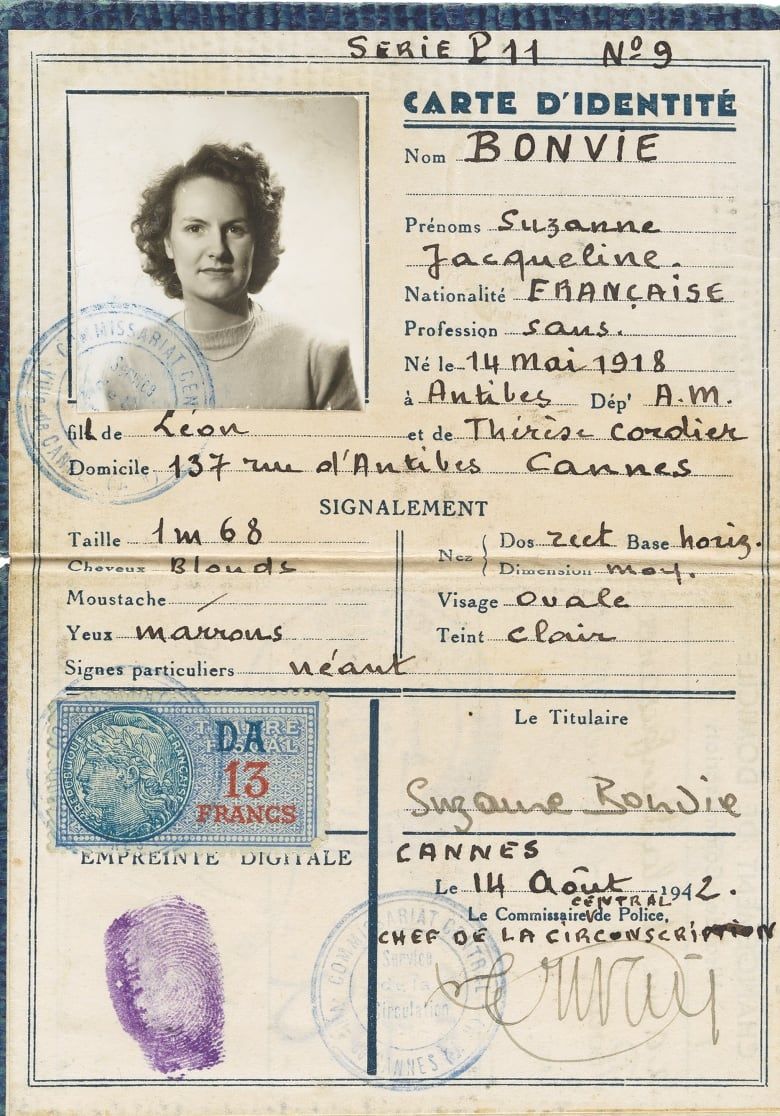 SERIE P 11 Nº 9
CARTE D'IDENTITÉ
Nom BONVIE
Prénoms Suzanne
Jacqueline.
Nationalité FRANÇAISE
Profession sans.
Né le 14 Mai 1918
à Antibes Dép' A.M.
fill de Léon et de Thérèse Cordier
Domicile 137 rue d'Antibes Cannes
SIGNALEMENT
Taille 1m 68
Cheveux Blonds
Moustache /
Yeux marrons
Signes particuliers néant
Nez { Dos rect Base horiz.
Dimension moy.
Visage ovale
Teint clair
TIMBRE
FISCAL
D.A
13
FRANCS
REPUBLIQUE FRANÇAISE
Le Titulaire
Suzanne Bonvie
EMPREINTE DIGITALE
CANNES
Le 14 Août 1942.
CENTRAL
Le Commissaire de Police,
CHEF DE LA CIRCONSCRIPTION
COMMISSARIAT CENTRAL
Service
de la
Circulation
CANNES
COMMISSARIAT CEN
Service